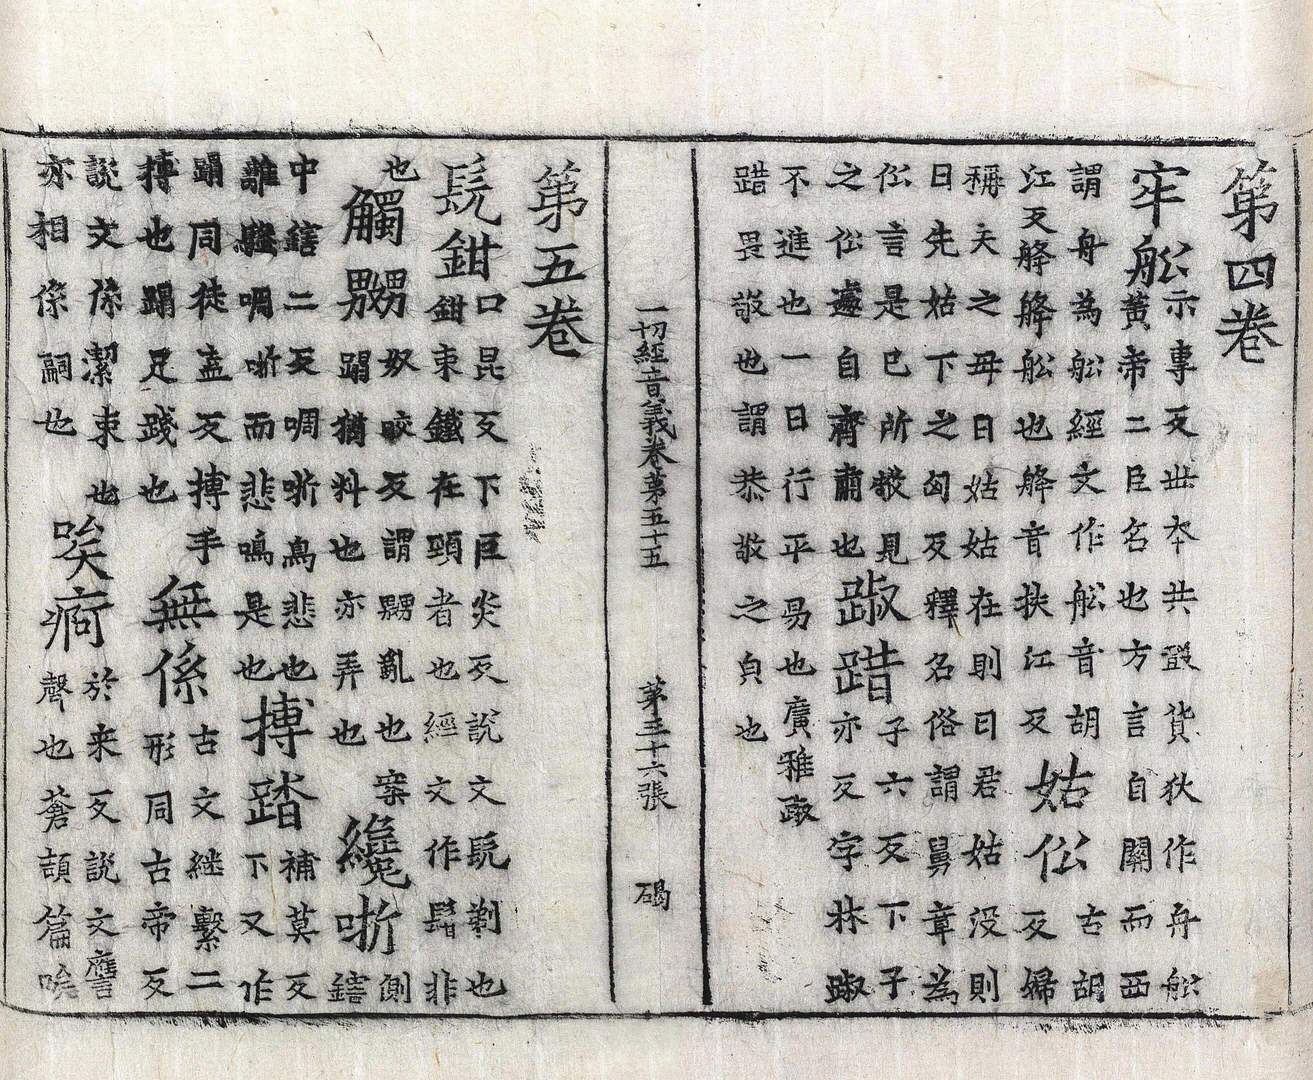 第四卷
牢舩
示專反世本共鼓貨狄作舟舩
黃帝二臣名也方言自關而西
謂舟為舩經文作舩音胡
江反舽舽舩也舽音扶江反
姑伀
古胡
反婦
稱夫之母曰姑姑在則曰君姑沒則
曰先姑下之匈反釋名俗謂舅章為
伀言是已所敬見
之伀遽自齊肅也
踧踖
子六反下子
亦反字林踧
不進也一曰行平易也廣雅踧
踖畏敬也謂恭敬之皃也
一切經音義卷第五十五　第三十六張　碣
第五卷
髡鉗
口昆反下巨炎反說文髡剃也
鉗束鐵在頸者也經文作非
也
觸嬲
奴咬反謂嬲亂也案
蹋猶料也亦弄也
纔哳
側
鎋
中鎋二反啁哳鳥悲也
離騷啁哳而悲鳴是也
搏踏
補莫反
下又作
蹋同徒盍反搏手
搏也蹋足踐也
無係
古文継繫二
形同古帝反
說文係潔束也
亦相係嗣也
唉痾
於来反說文譍
聲也蒼頡篇唉